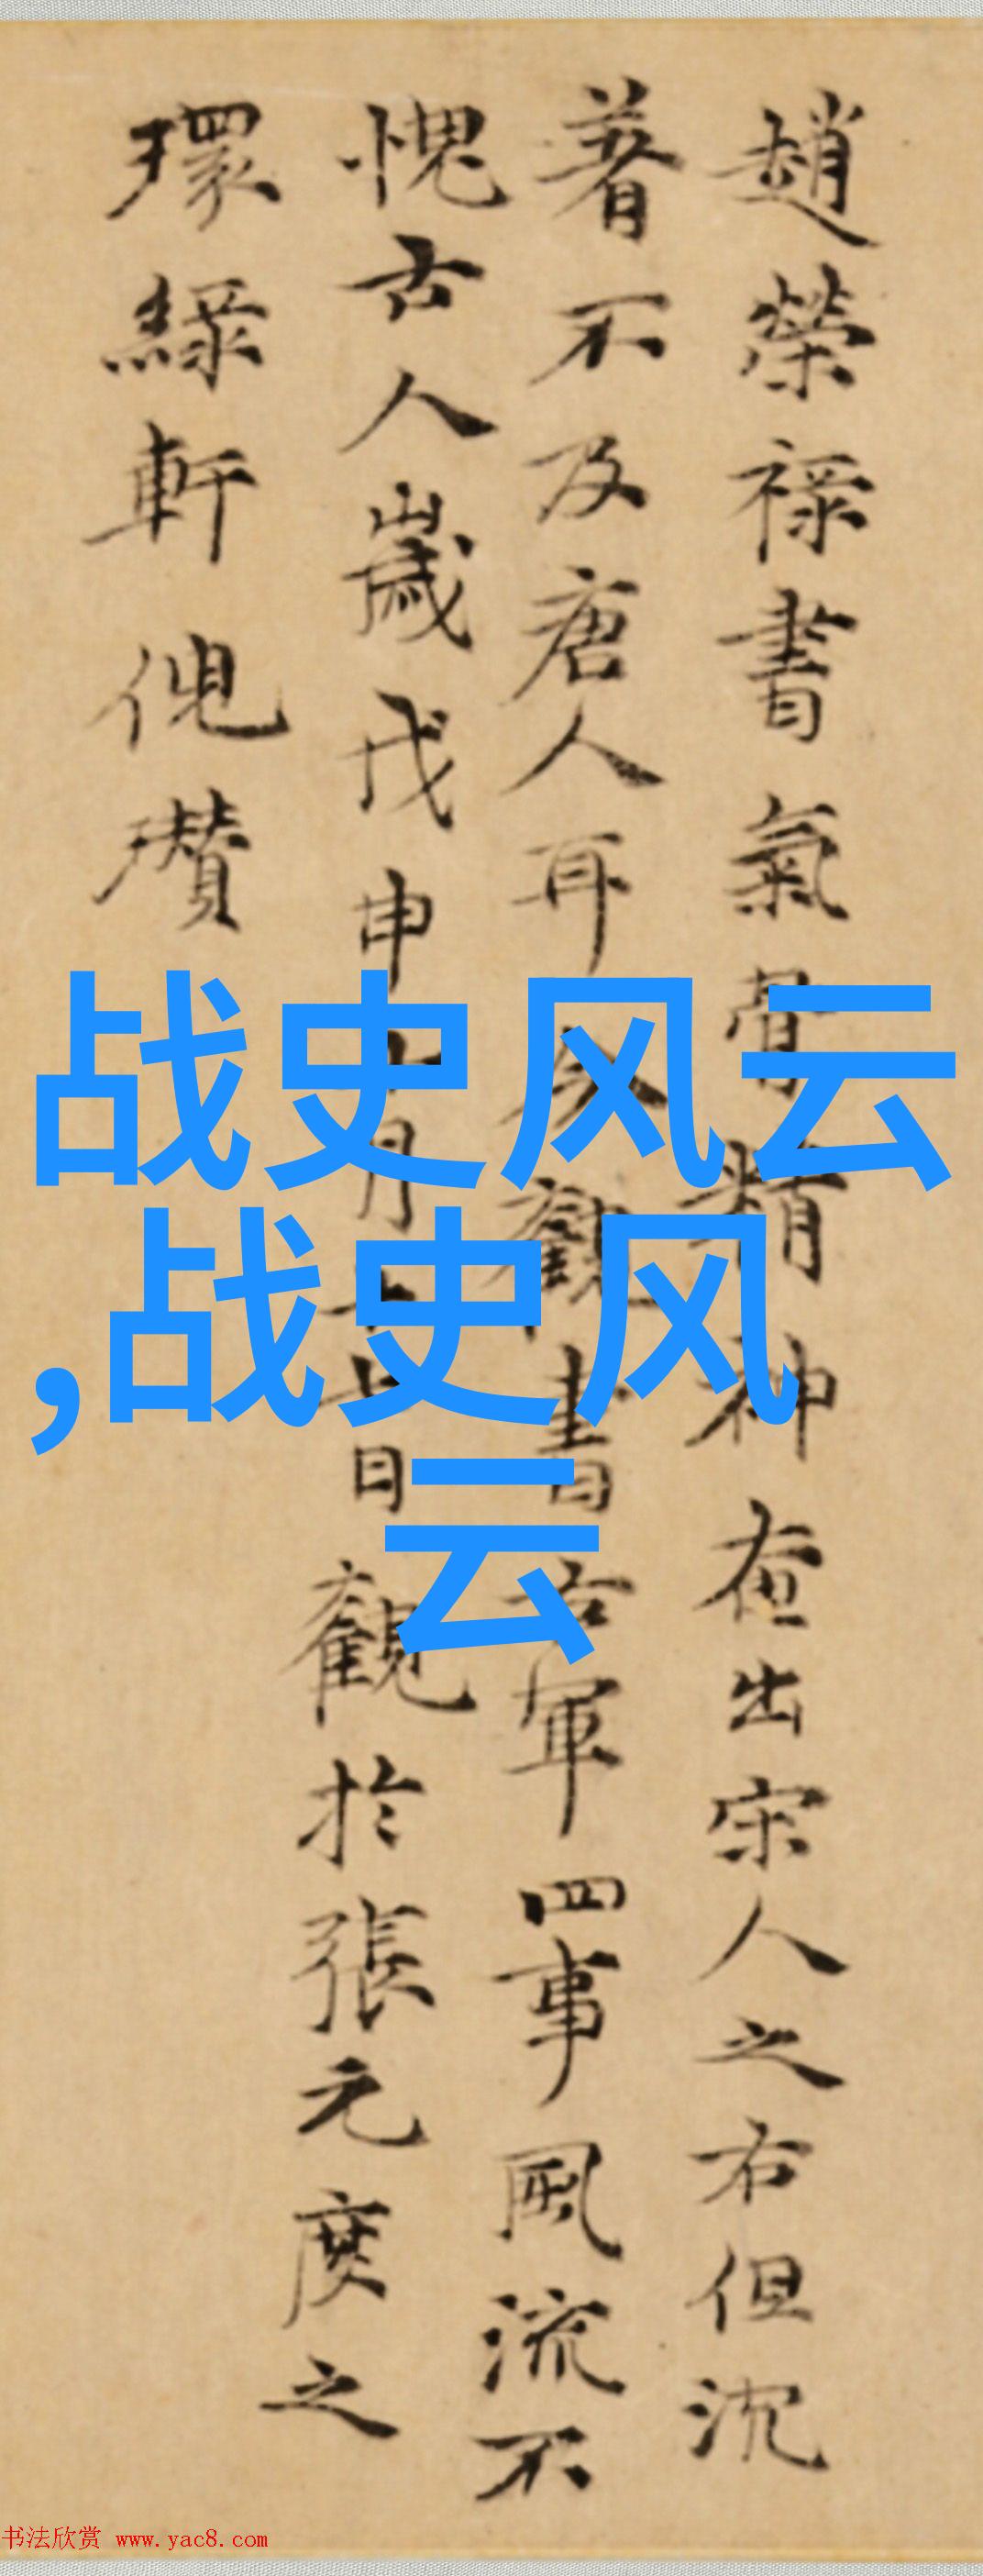 趙榮祿書氣骨精神盍出宋人之右但沈
著不及唐人耳今觀書右軍四事風流不
愧古人歲戊申七月十七日觀於張元度之
環綠軒倪瓚
战史风云
,战史风
云
书法欣赏 www.yac8.com